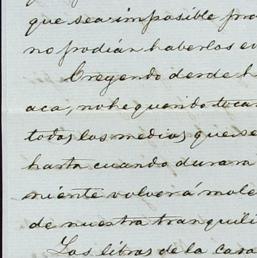 que sea imposible pro
no podián haberlos ev
Creyendo desde h
aca, no he querido toca
todos los medios que se
hasta cuando durara
miente volverá mole
de nuestra tranquili
Las libras de la casa